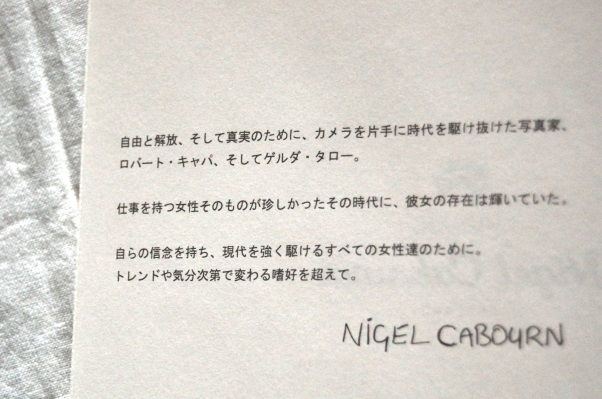 自由と解放、そして真実のために、カメラを片手に時代を駆け抜けた写真家、
ロバート・キャパ、そしてゲルダ・タロー。
仕事を持つ女性そのものが珍しかったその時代に、彼女の存在は輝いていた。
自らの信念を持ち、現代を強く駆けるすべての女性達のために。
トレンドや気分次第で変わる嗜好を超えて。
NIGEL CABOURN